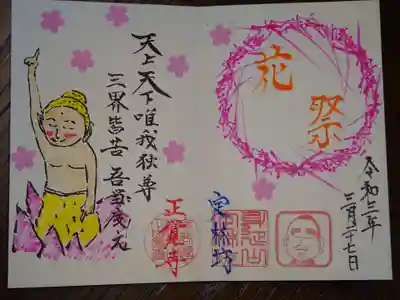 花祭
令和三年
三月二十七日
天上天下唯我独尊
三界皆苦 吾当度之
定林坊
正覚寺